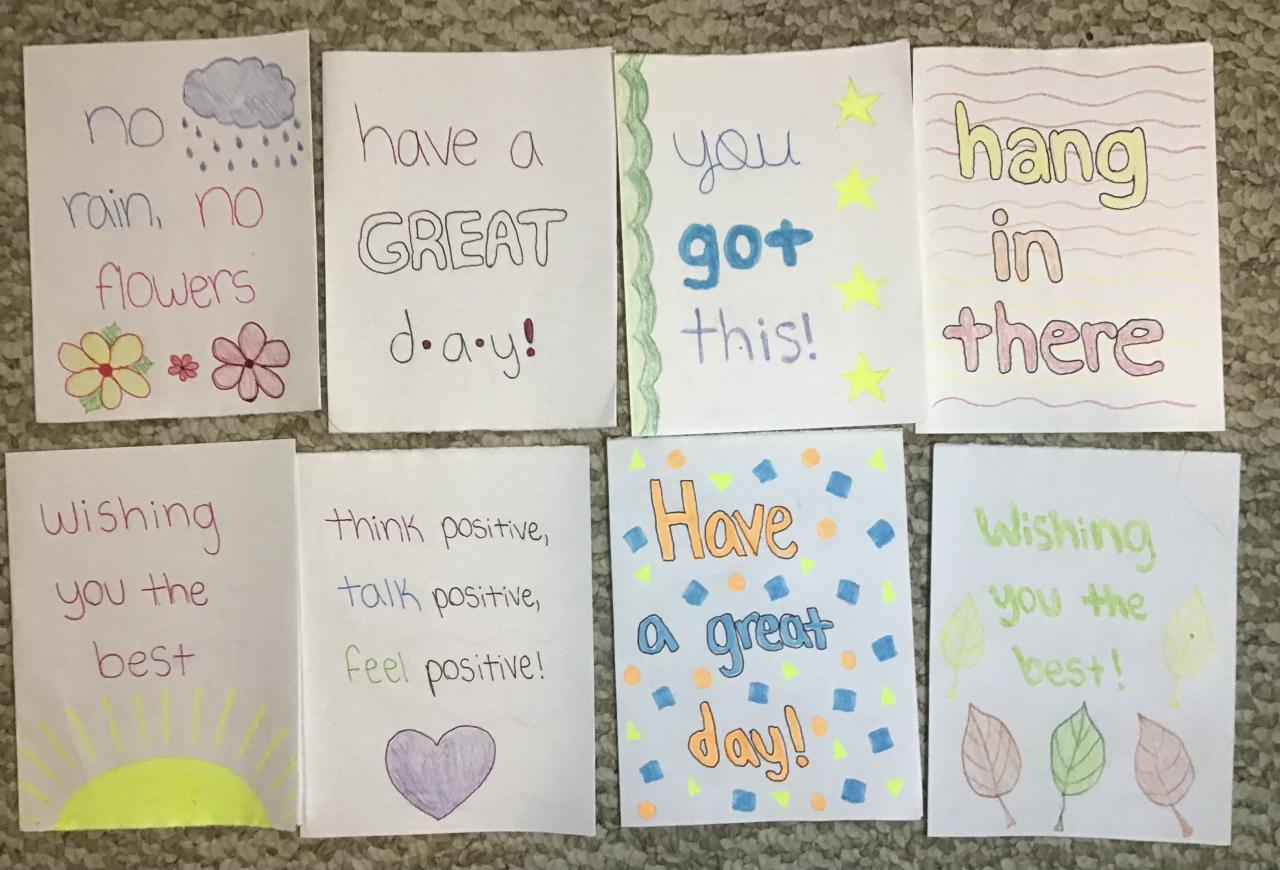 no
rain, no
flowers
have a
GREAT
d•a•y!
you
got
this!
hang
in
there
wishing
you the
best
think positive,
talk positive,
feel positive!
Have
a great
day!
Wishing
you the
best!